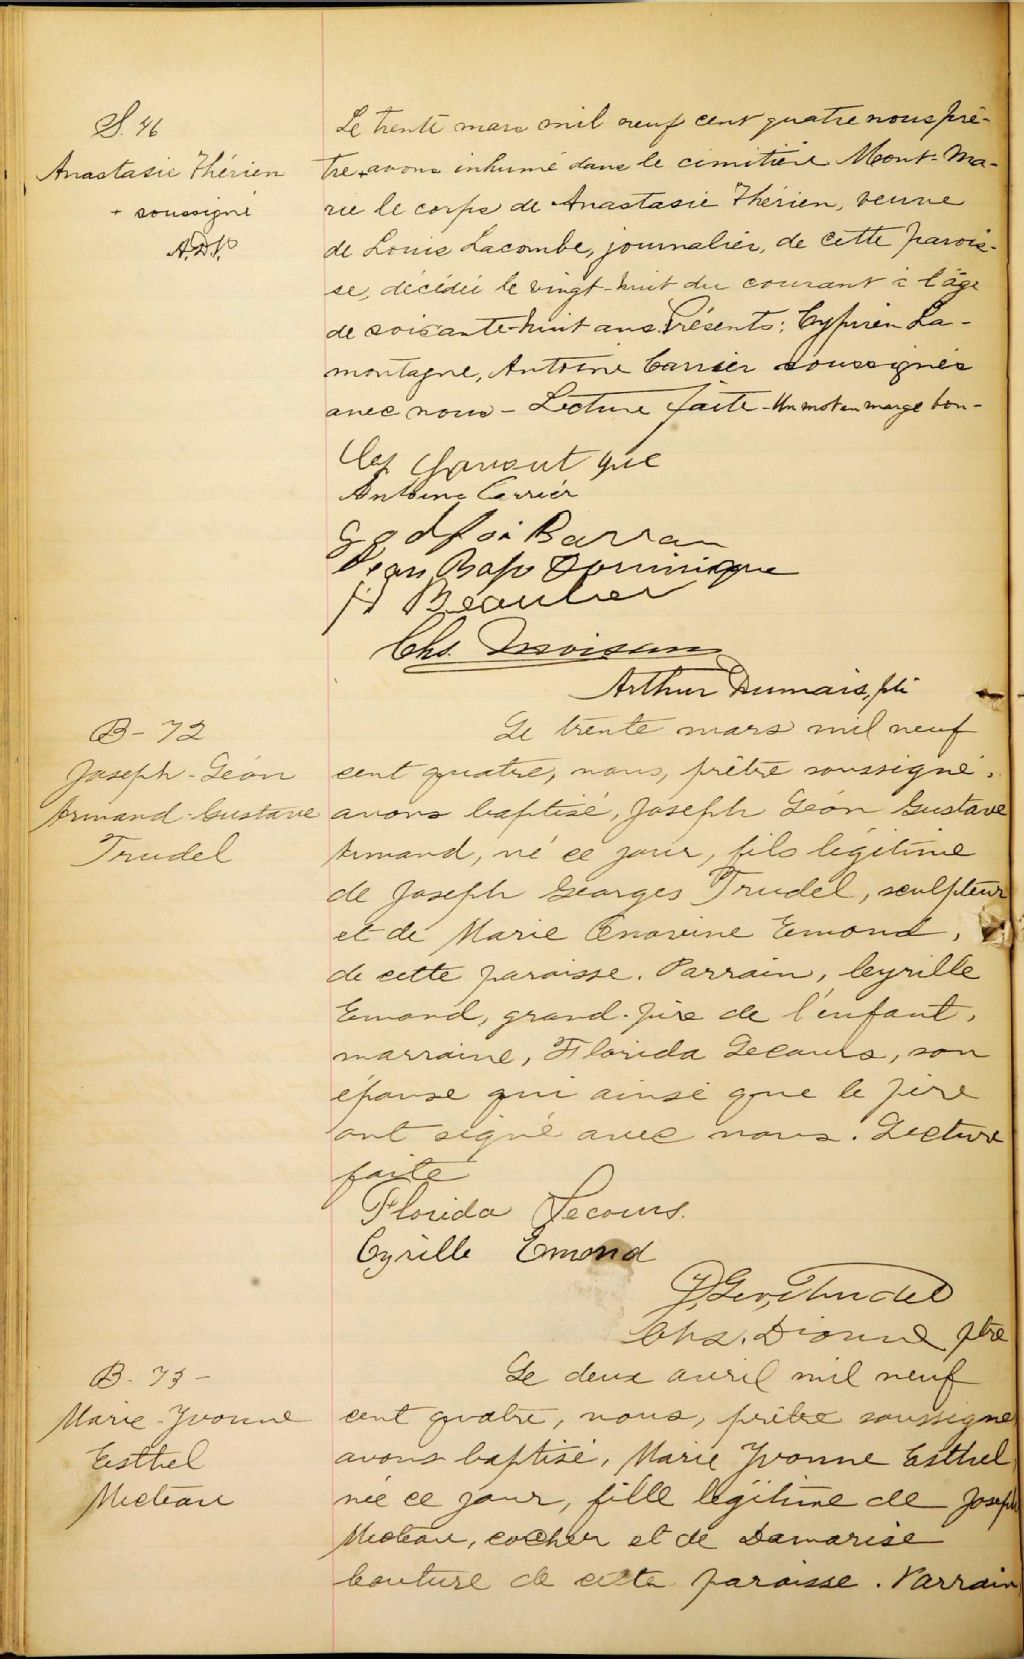 S. 46
Anastasie Thérien
+ soussigné
A.D. P
Le trente mars mil neuf cent quatre nous prê-
tre + avons inhumé dans le cimitière Mont-Ma-
rie le corps de Anastasie Thérien, veuve
de Louis Lacombe, journalier, de cette parois-
se, décédée le vingt-huit du courant à l'âge
de soixante-huit ans. Présents: Cyprien La-
montagne, Antoine Carrier soussignés
avec nous - Lecture faite - Un mot en marge bon -
Antoine Carrier
Godfroi
Jean Bapt Dominique
Beaulieu
Chs.
Arthur Dumais, ptr
B - 72
Joseph - Léon
Armand - Gustave
Trudel
Le trente mars mil neuf
cent quatre, nous, prêtre soussigné,
avons baptisé, Joseph Léon Gustave
Armand, né ce jour, fils légitime
de Joseph Georges Trudel, sculpteur
et de Marie Emond,
de cette paroisse. Parrain, Cyrille
Emond, grand-père de l'enfant,
marraine, Florida Lecours, son
épouse qui ainsi que le père
ont signé avec nous. Lecture
faite
Florida Lecours.
Cyrille Emond
J. Geo. Trudel
Chs. Dionne ptre
B - 73 -
Marie - Yvonne
Esthel
Micteau
Le deux avril mil neuf
cent quatre, nous, prêtre soussigné
avons baptisé, Marie Yvonne Esthel,
née ce jour, fille légitime de Joseph
Micteau, cocher et de Damarise
Couture de cette paroisse. Parrain